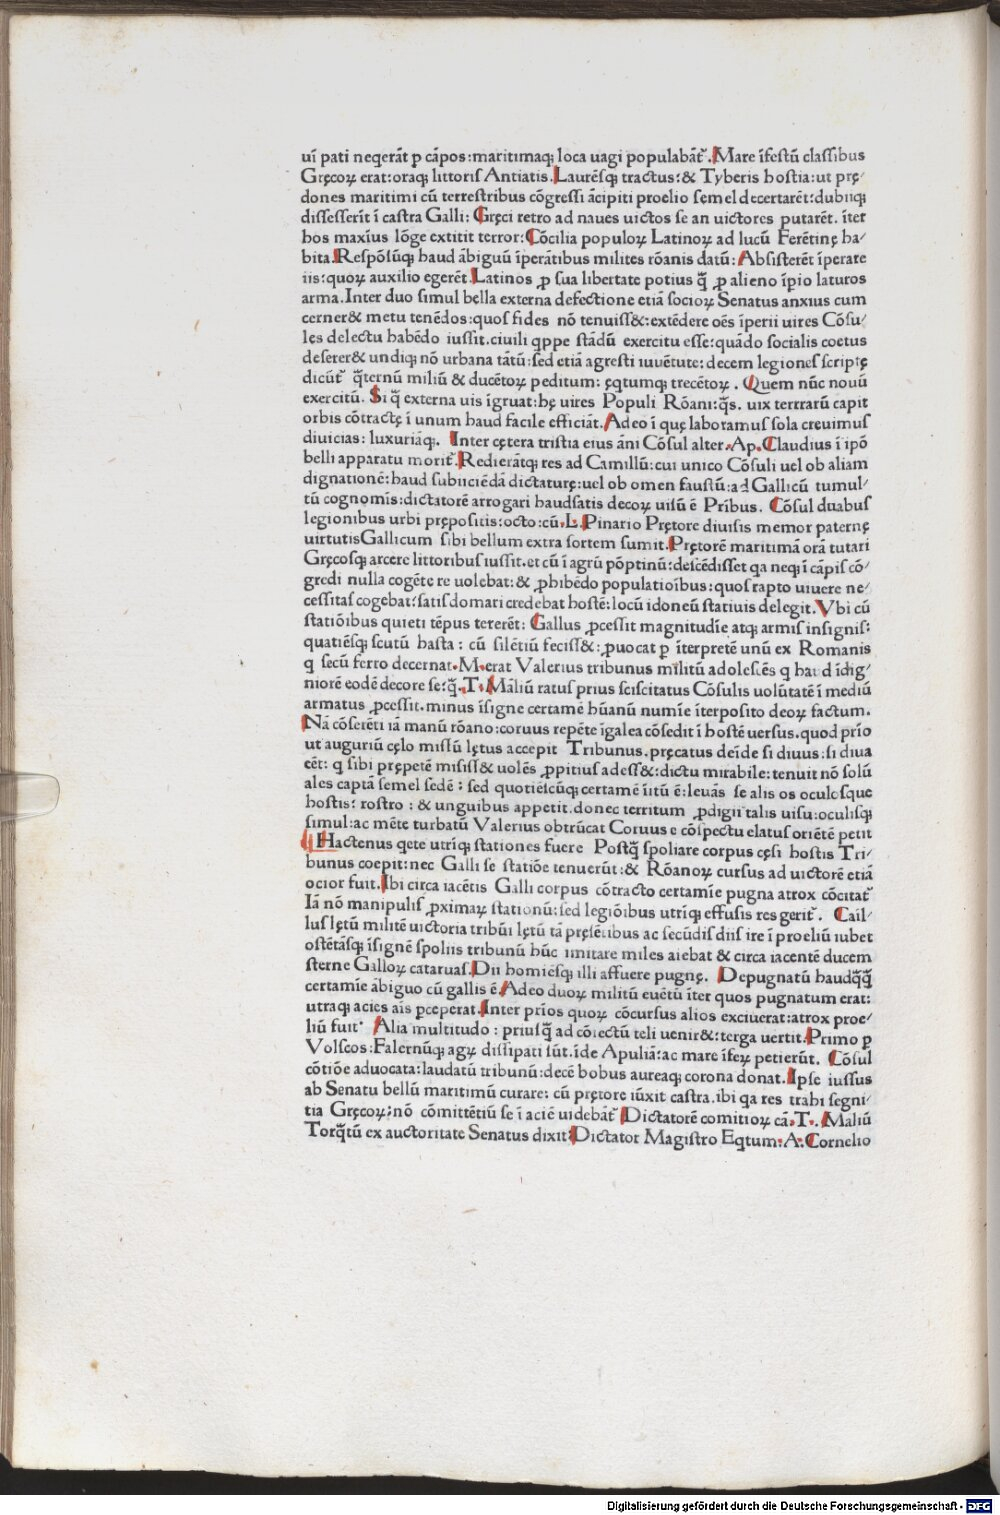 uī pati neqerāt ꝑ cāpos:maritimaqꝫ loca uagi populabāt᷑.Mare īfestū classibus
Gręcoꝝ erat:oraqꝫ littoris Antiatis.Laurēsqꝫ tractus:& Tyberis hostia:ut prę-
dones maritimi cū terrestribus cōgressi āncipiti proelio semel decertarēt:dubiiqꝫ
dissesserīt ī castra Galli: Gręci retro ad naues uictos se an uictores putarēt. īter
hos maxīus lōge extitit terror: Cōcilia populoꝝ Latinoꝝ ad lucū Ferētinę ha/
bita.Respōsūqꝫ haud ābiguū īperātibus milites rōanis datū: Absisterēt īperare
iis:quoꝝ auxilio egerēt.Latinos ꝓ sua libertate potius q̄̄ ꝓ alieno īpio laturos
arma.Inter duo simul bella externa defectione etiā socioꝝ Senatus anxius cum
cerner& metu tenēdos:quos fides nō tenuiss&:extēdere oēs īperii uires Cōsu/
les delectu habēdo iussit.ciuili qppe stādū exercitu esse:quādo socialis coetus
deserer& undiqꝫ nō urbana tātū:sed etiā agresti iuuētute: decem legiones scriptę
dicūt᷑ q̄ternū miliū & ducētoꝝ peditum: ęqtumqꝫ trecētoꝝ . Quem nūc nouū
exercitū. Si q̄ externa uis īgruat:hę uires Populi Rōani:q̄s. uix terrrarū capit
orbis cōtractę ī unum haud facile efficiāt.Adeo ī quę laboramus sola creuimus
diuicias: luxuriāqꝫ. Inter cętera tristia eius āni Cōsul alter.Ap.Claudius ī ipō
belli apparatu morit᷑.Redierātqꝫ res ad Camillū:cui unico Cōsuli uel ob aliam
dignationē:haud subiiciēdā dictaturę:uel ob omen faustū:ad Gallicū tumul/
tū cognomīs:dictatorē arrogari haudsatis decoꝝ uisū ē Prībus. Cōsul duabus
legionibus urbi prępositis:octo:cū.L.Pinario Prętore diuisis memor paternę
uirtutisGallicum sibi bellum extra sortem sumit.Prętorē maritimā orā tutari
Gręcosqꝫ arcere littoribus iussit.et cū ī agrū pōptinū:descēdisset qa neqꝫ ī cāpis cō/
gredi nulla cogēte re uolebat:& ꝓhibēdo populatioībus:quos rapto uiuere ne/
cessitas cogebat:satis domari credebat hostē:locū idoneū statiuis delegit.Vbi cū
statiōibus quieti tēpus tererēt: Gallus ꝓcessit magnitudīe atqꝫ armis insignis:
quatiēsqꝫ scutū hasta : cū silētiū feciss&:ꝓuocat ꝑ īterpretē unū ex Romanis
q secū ferro decernat.M.erat Valerius tribunus militū adolescēs q haud īdig/
niorē eodē decore se:q̄.T.Māliū ratus prius sciscitatus Cōsulis uolūtatē ī mediū
armatus ꝓcessit.minus īsigne certamē hūanū numīe īterposito deoꝝ factum.
Nā cōserēti iā manū rōano:coruus repēte īgalea cōsedit ī hostē uersus.quod prīo
ut auguriū cęlo missū lętus accepit Tribunus.pręcatus deīde si diuus:si diua
eēt: q sibi prępetē misiss& uolēs ꝓpitius adess&:dictu mirabile:tenuit nō solū
ales captā semel sedē : sed quotiēscūqꝫ certamē īitū ē:leuās se alis os oculosque
hostis: rostro : & unguibus appetit.donec territum ꝓdigii talis uisu:oculisqꝫ
simul:ac mēte turbatū Valerius obtrūcat Coruus e cōspectu elatus oriētē petit
Hactenus qete utrīqꝫ stationes fuere Postq̄ spoliare corpus cęsi hostis Tri/
bunus coepit:nec Galli se statiōe tenuerūt:& Rōanoꝝ cursus ad uictorē etiā
ocior fuit.Ibi circa iacētis Galli corpus cōtracto certamīe pugna atrox cōcitat᷑
Iā nō manipulis ꝓximaꝝ stationū:sed legiōibus utrīqꝫ effusis res gerit᷑. Cail/
lus lętū militē uictoria tribūi lętū tā pręsētibus ac secūdis diis ire ī proeliū iubet
ostētāsqꝫ īsignē spoliis tribunū hūc imitare miles aiebat & circa iacentē ducem
sterne Galloꝝ cataruas.Dii homiēsqꝫ illi affuere pugnę. Depugnatū haudq̄q̄
certamīe ābiguo cū gallis ē.Adeo duoꝝ militū euētū īter quos pugnatum erat:
utraqꝫ acies aīs pceperat.Inter prīos quoꝝ cōcursus alios exciuerat:atrox proe/
liū fuit. Alia multitudo : priusq̄ ad cōiectū teli uenir&:terga uertit.Primo ꝑ
Volscos:Falernūqꝫ agꝝ dissipati sūt.īde Apuliā:ac mare īfeꝝ petierūt. Cōsul
cōtiōe aduocata:laudatū tribunū:decē bobus aureaqꝫ corona donat.Ipse iussus
ab Senatu bellū maritimū curare: cū prętore iūxit castra.ibi qa res trahi segni/
tia Gręcoꝝ:nō cōmittētiū se ī aciē uidebāt᷑ Dictatorē comitioꝝ cā.T. Māliū
Torq̄tū ex auctoritate Senatus dixit:Dictator Magistro Eqtum:A.Cornelio
Digitalisierung gefördert durch die Deutsche Forschungsgemeinschaft - DFG